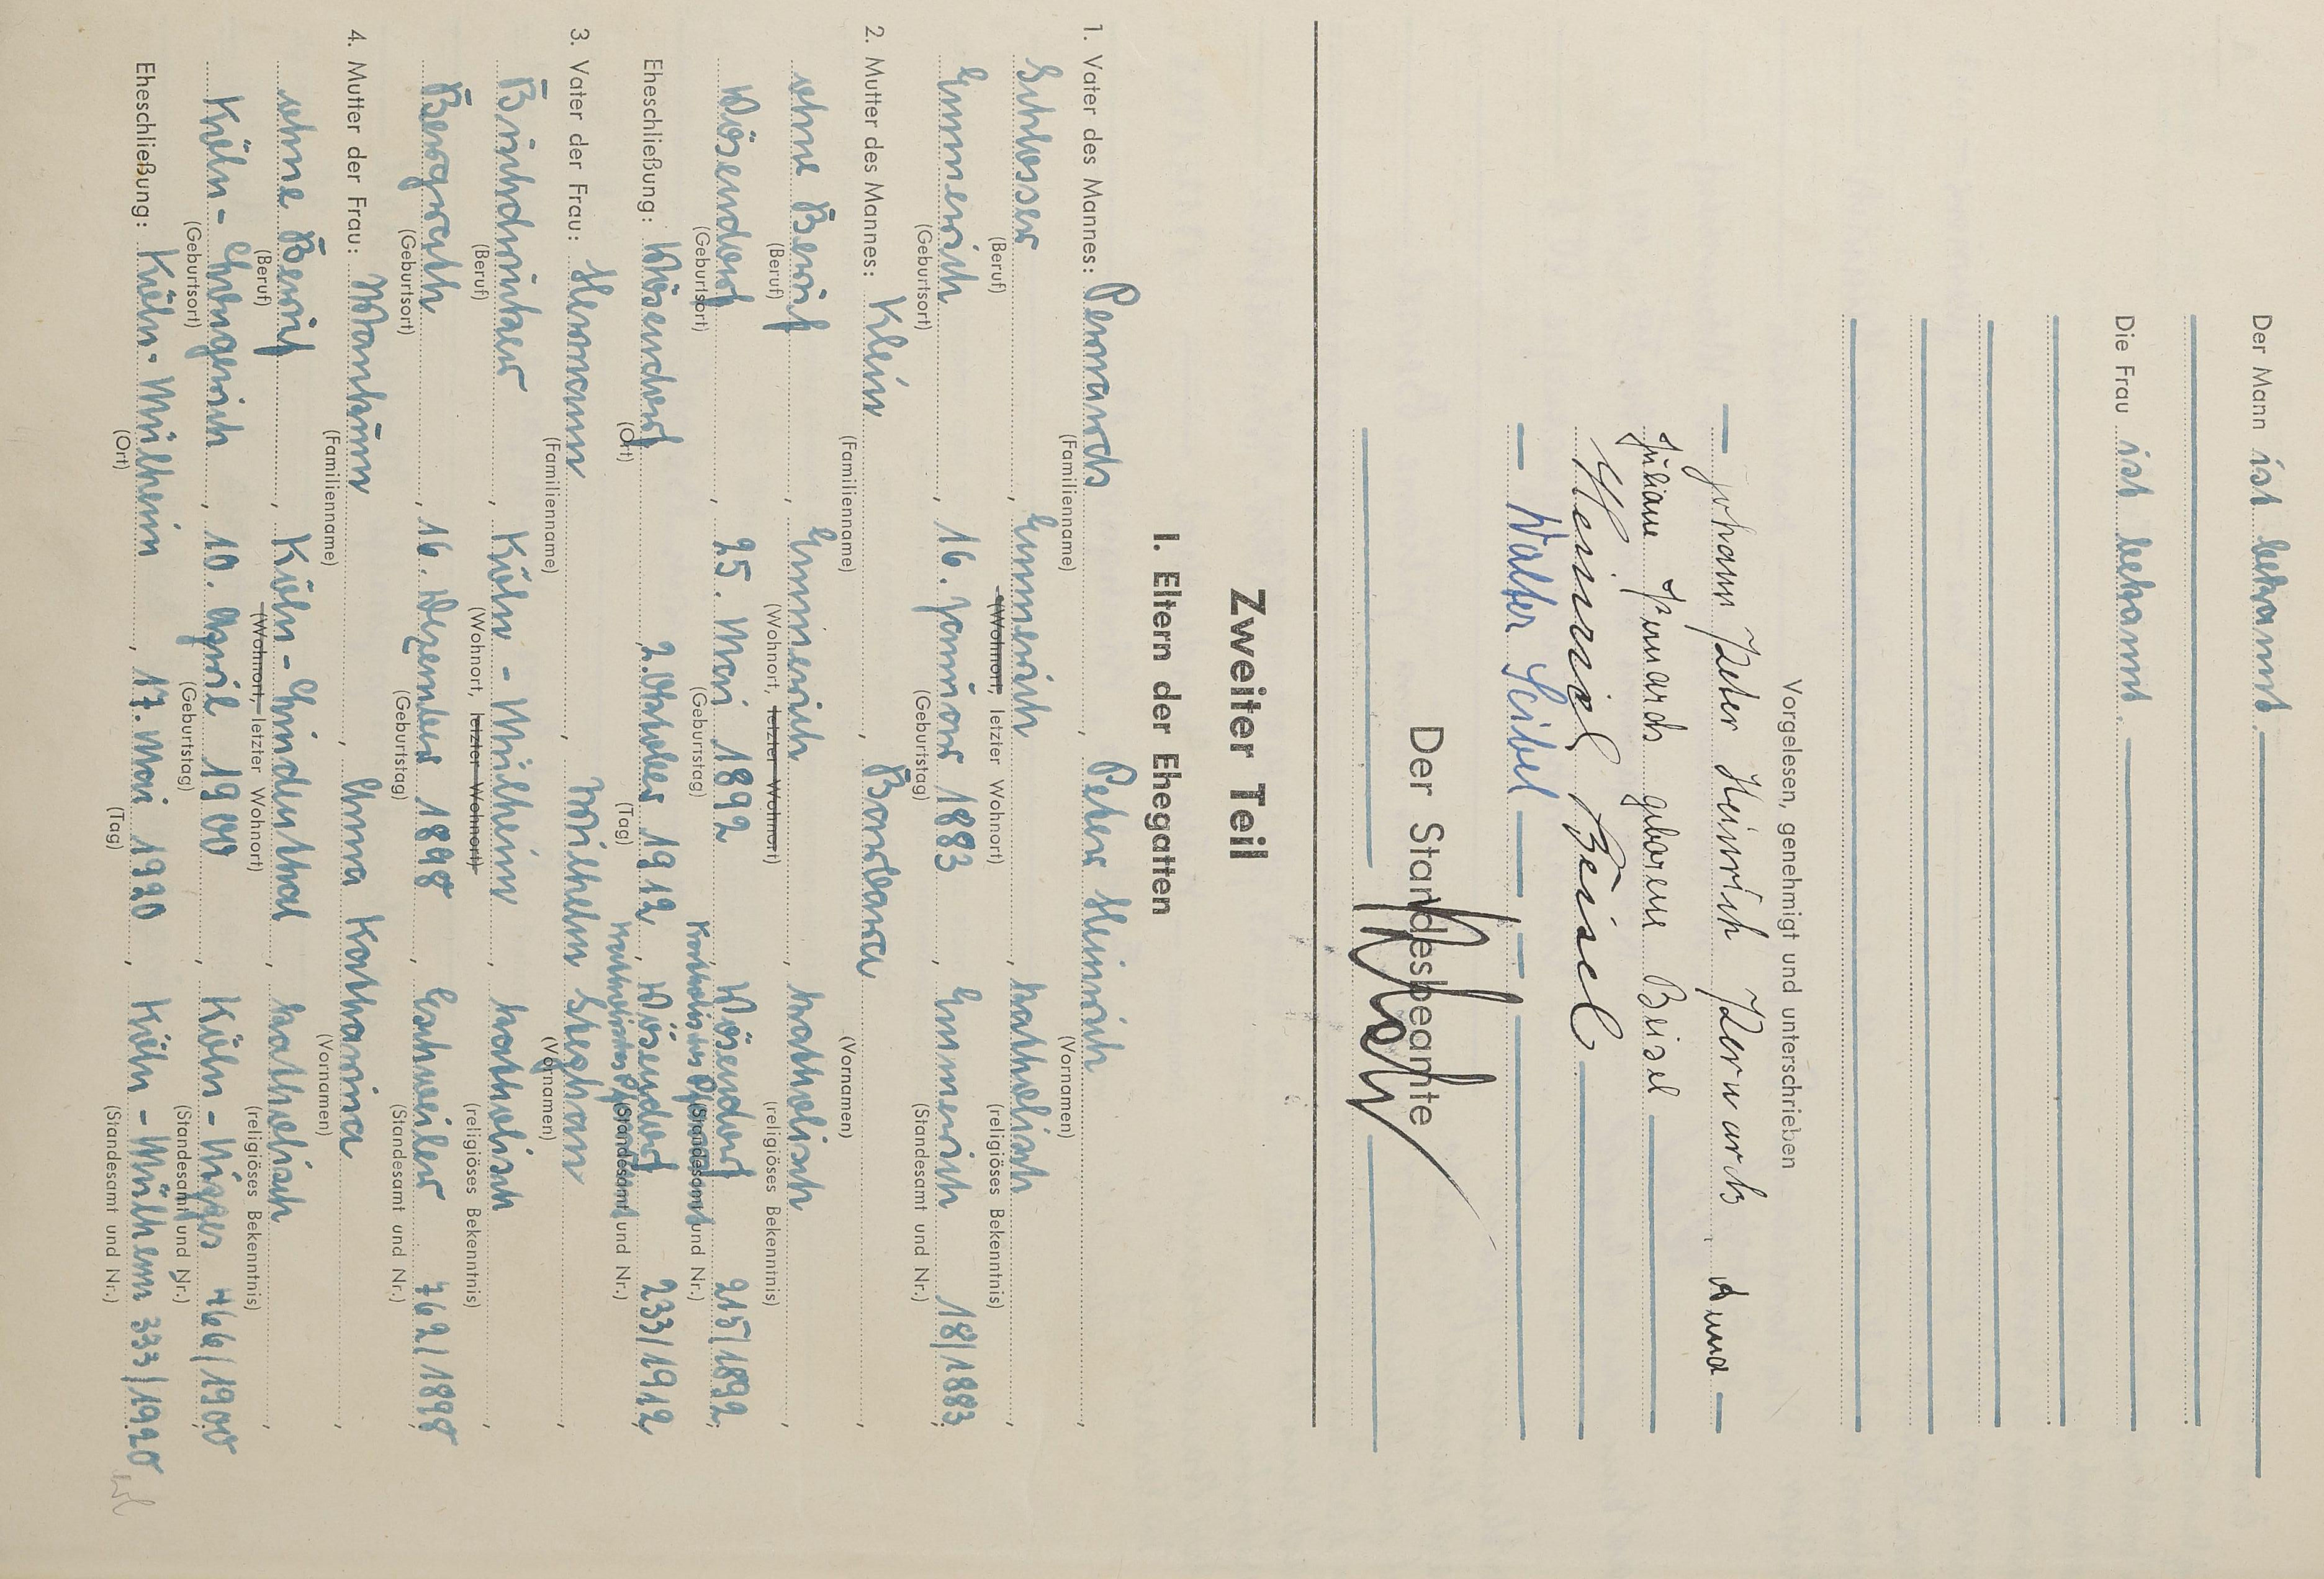 Der Mann ist bekannt.
Die Frau ist bekannt.
Vorgelesen, genehmigt und unterschrieben
Johann Peter Heinrich Pernards, Anna
Juliane Pernards geborene Beisel
Heinrich Beisel
Walter Seibel
Der Standesbeamte
Zweiter Teil
I. Eltern der Ehegatten
1. Vater des Mannes: Pernards, Peter Heinrich,
(Familienname) (Vornamen)
Schlosser, Emmerich, katholisch,
(Beruf) (Wohnort, letzter Wohnort) (religiöses Bekenntnis)
Emmerich, 16. Januar 1883, Emmerich 18/1883;
(Geburtsort) (Geburtstag) (Standesamt und Nr.)
2. Mutter des Mannes: Klein, Barbara,
(Familienname) (Vornamen)
ohne Beruf, Emmerich, katholisch,
(Beruf) (Wohnort, letzter Wohnort) (religiöses Bekenntnis)
Dösendorf, 25. Mai 1892, Dösendorf 215/1892;
(Geburtsort) (Geburtstag) (Standesamt und Nr.)
Eheschließung: Dösendorf, 2. Oktober 1912, Dösendorf 233/1912,
(Ort) (Tag) (Standesamt und Nr.)
3. Vater der Frau: Hermann, Wilhelm Stephan,
(Familienname) (Vornamen)
Buchdrucker, Köln - Mülheim, katholisch,
(Beruf) (Wohnort, letzter Wohnort) (religiöses Bekenntnis)
Bergrath, 16. Dezember 1898, Eschweiler 762/1898;
(Geburtsort) (Geburtstag) (Standesamt und Nr.)
4. Mutter der Frau: Anna Katharina,
(Familienname) (Vornamen)
ohne Beruf, Köln - Lindenthal, katholisch,
(Beruf) (Wohnort, letzter Wohnort) (religiöses Bekenntnis)
Köln - Longerich, 10. April 1900, Köln - Nippes 466/1900;
(Geburtsort) (Geburtstag) (Standesamt und Nr.)
Eheschließung: Köln - Mülheim, 17. Mai 1920, Köln - Mülheim 333/1920
(Ort) (Tag) (Standesamt und Nr.)